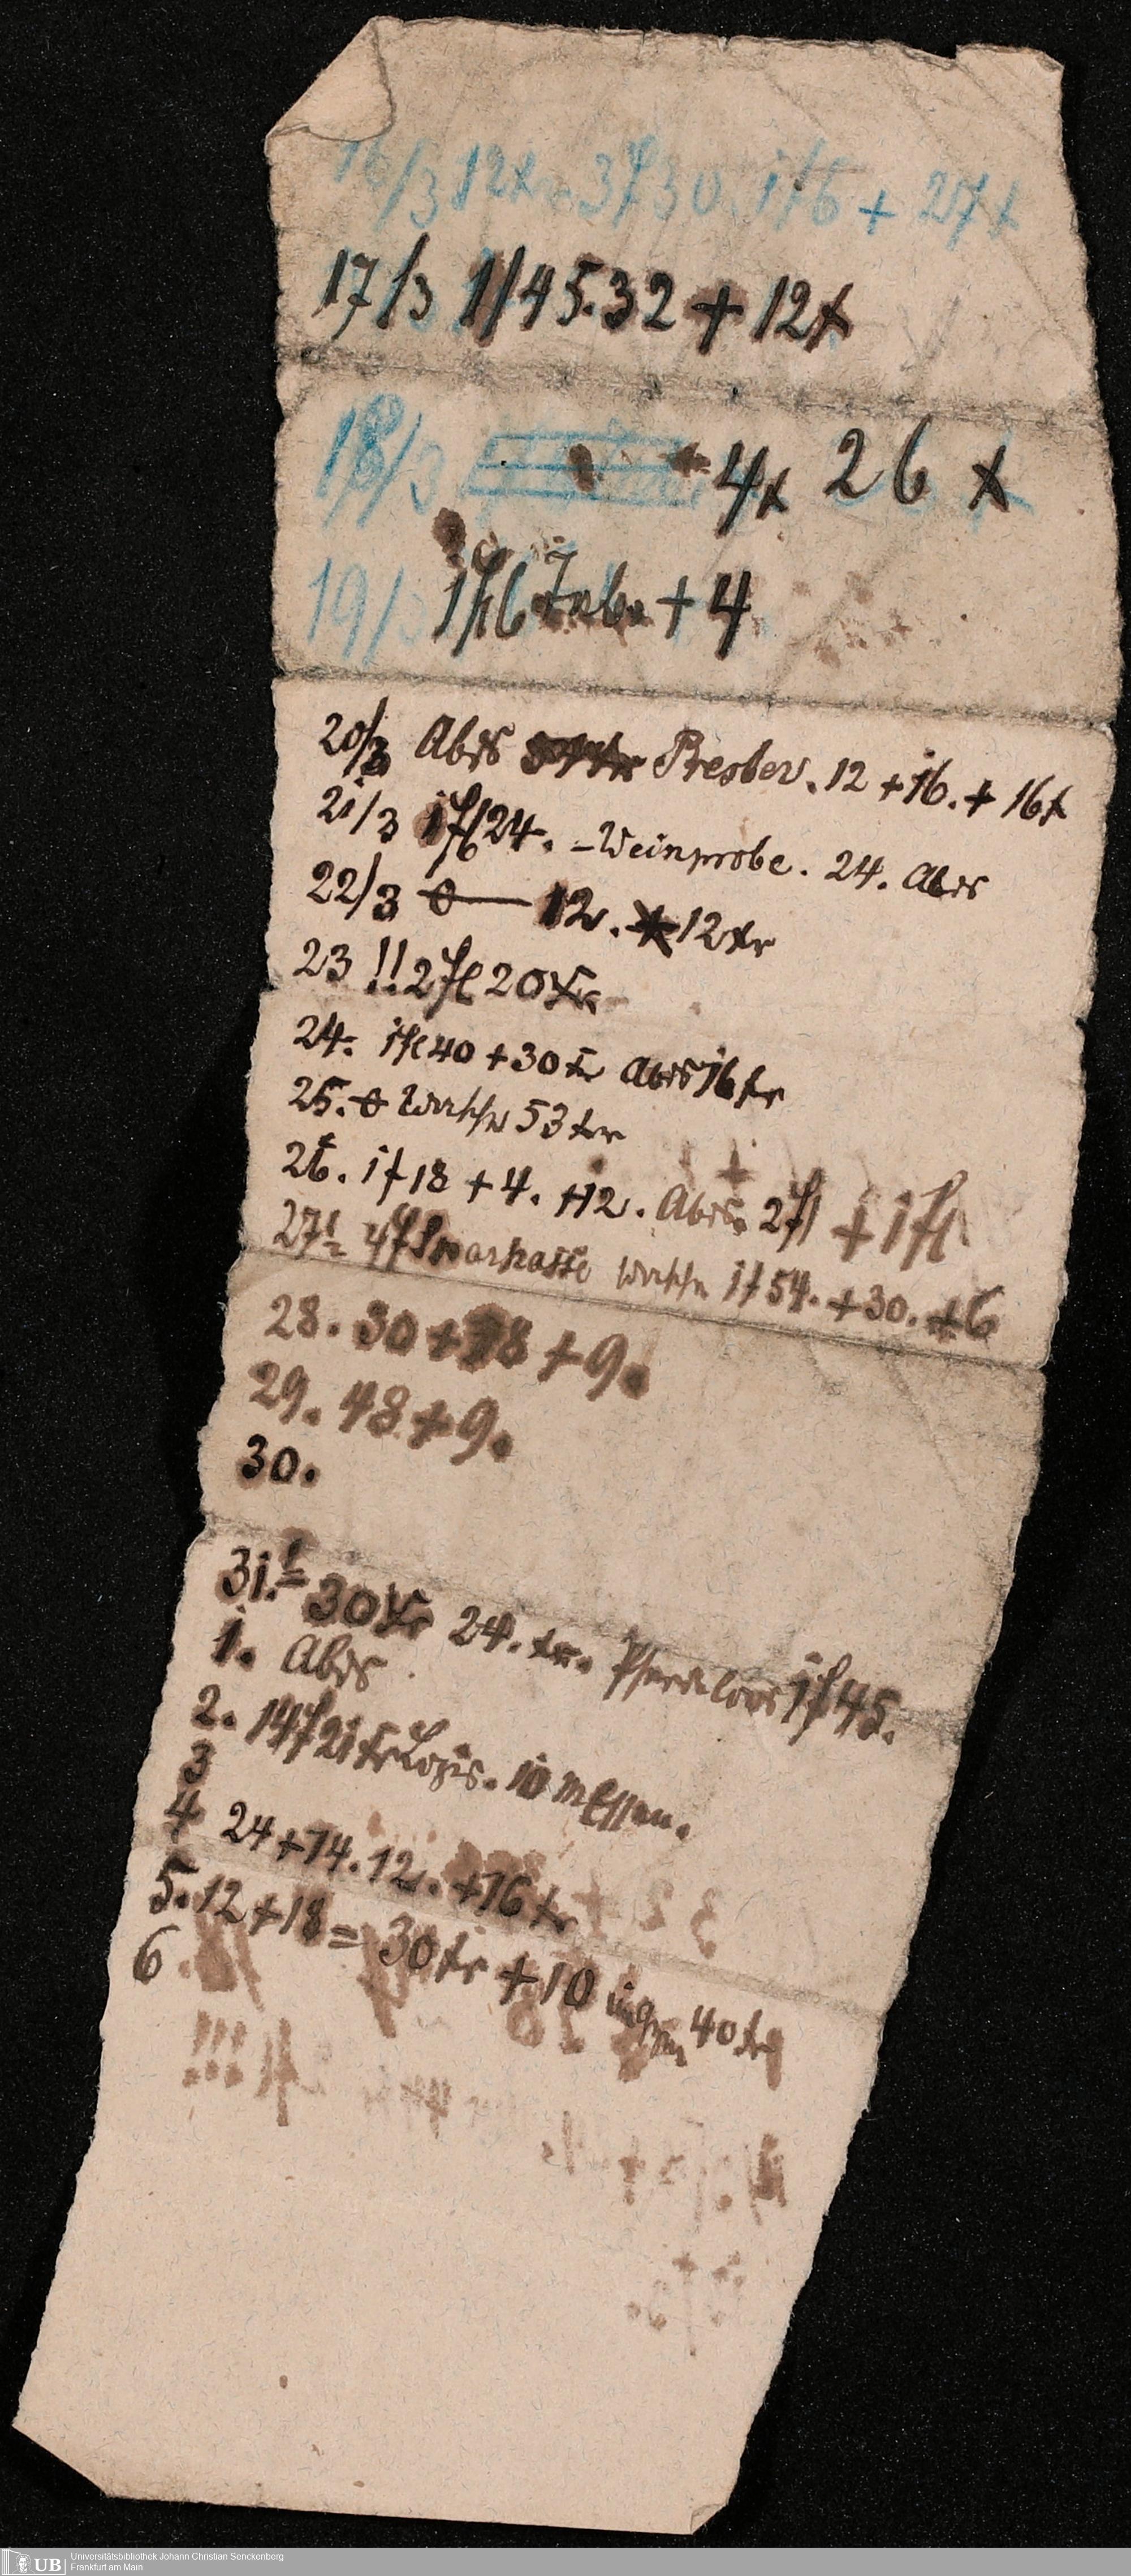 16/3 12x 3f30 1f6 + 27x
17/3 1f45.32 + 12x
18/3 4x 26 x
19/3 1f16 Tab. + 4
20/3 Abds Presber. 12 + 16. + 16x
21/3 1fl24. – Weinprobe. 24. Abds
22/3 0— 12. 12xr
23 !! 2fl 20xr
24. 1fl40 + 30xr Abds 16xr
25. 0 53xr
26. 1f18 + 4. +12. Abds. 2fl + 1fl
27! 4f Sparkasse 1f54. + 30. + 6
28. 30 + 38 + 9.
29. 48 + 9.
30.
31.! 30xr 24. xr. Pferdeloos 1f45.
1. Abds.
2. 14f21xr Logis. 10 messen.
3
4 24 + 14. 12. + 16xr
5. 12 + 18 = 30xr + 10 40xr
6
Universitätsbibliothek Johann Christian Senckenberg
UB Frankfurt am Main